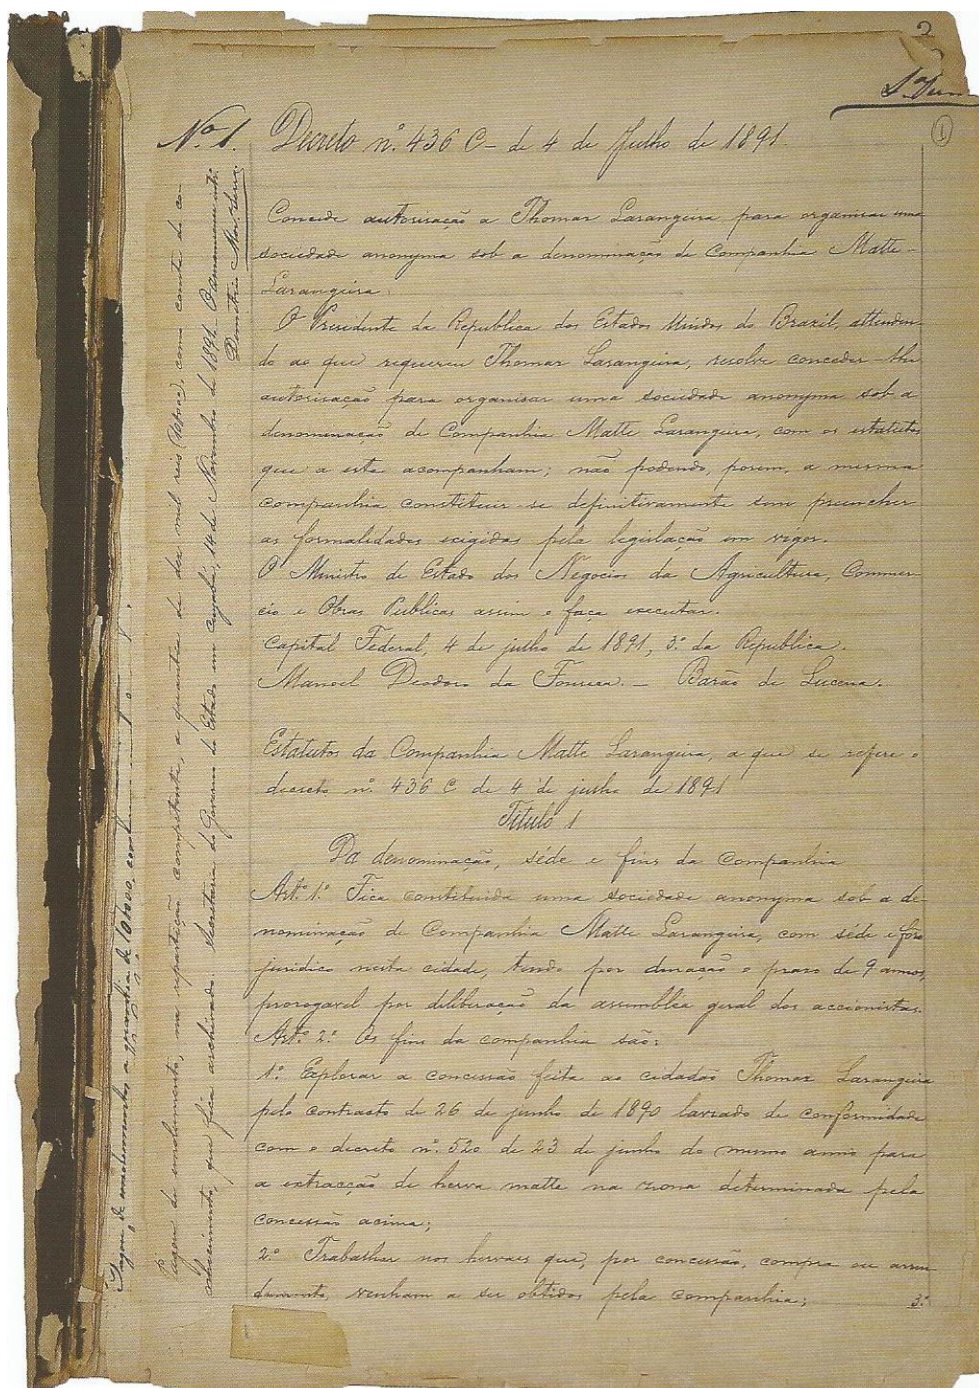 2
Nº 1. Decreto nº 436 C - de 4 de Julho de 1891.
1
Concede autorisação a Thomaz Larangeira para organisar uma
sociedade anonyma sob a denominação de Companhia Matte-
Larangeira.
O Presidente da Republica dos Estados Unidos do Brazil, attenden-
do ao que requereu Thomaz Larangeira, resolve conceder-lhe
autorisação para organisar uma sociedade anonyma sob a
denominação de Companhia Matte Larangeira, com os estatutos
que a esta acompanham; não podendo, porem, a mesma
companhia constituir-se definitivamente sem preencher
as formalidades exigidas pela legislação em vigor.
O Ministro de Estado dos Negocios da Agricultura, Commer-
cio e Obras Publicas assim o faça executar.
Capital Federal, 4 de julho de 1891, 3º da Republica.
Manoel Deodoro da Fonseca. - Barão de Lucena.
Estatutos da Companhia Matte Larangeira, a que se refere o
decreto nº 436 C de 4 de julho de 1891
Titulo 1
Da denominação, séde e fins da Companhia
Artº 1º Fica constituida uma sociedade anonyma sob a de-
nominação de Companhia Matte Larangeira, com séde e fôro
juridico nesta cidade, tendo por duração o praso de 9 annos,
prorogavel por deliberação da assemblea geral dos accionistas.
Artº 2º Os fins da companhia são:
1º Explorar a concessão feita ao cidadão Thomaz Larangeira
pelo contracto de 26 de junho de 1890 lavrado de conformidade
com o decreto nº 520 de 23 de junho do mesmo anno para
a extracção de herva matte na zona determinada pela
concessão acima;
2º Trabalhar nos hervaes que, por concessão, compra ou arren-
damento, venham a ser obtidos pela companhia;
3º
Pagou de emolumento, na repartição competente, a quantia de dez mil reis (10$000), como consta do co-
nhecimento, que fica archivado. Secretaria do Governo do Estado em Cuyabá, 14 de Novembro de 1892. O
Pagou de emolumentos a quantia de 10$000,